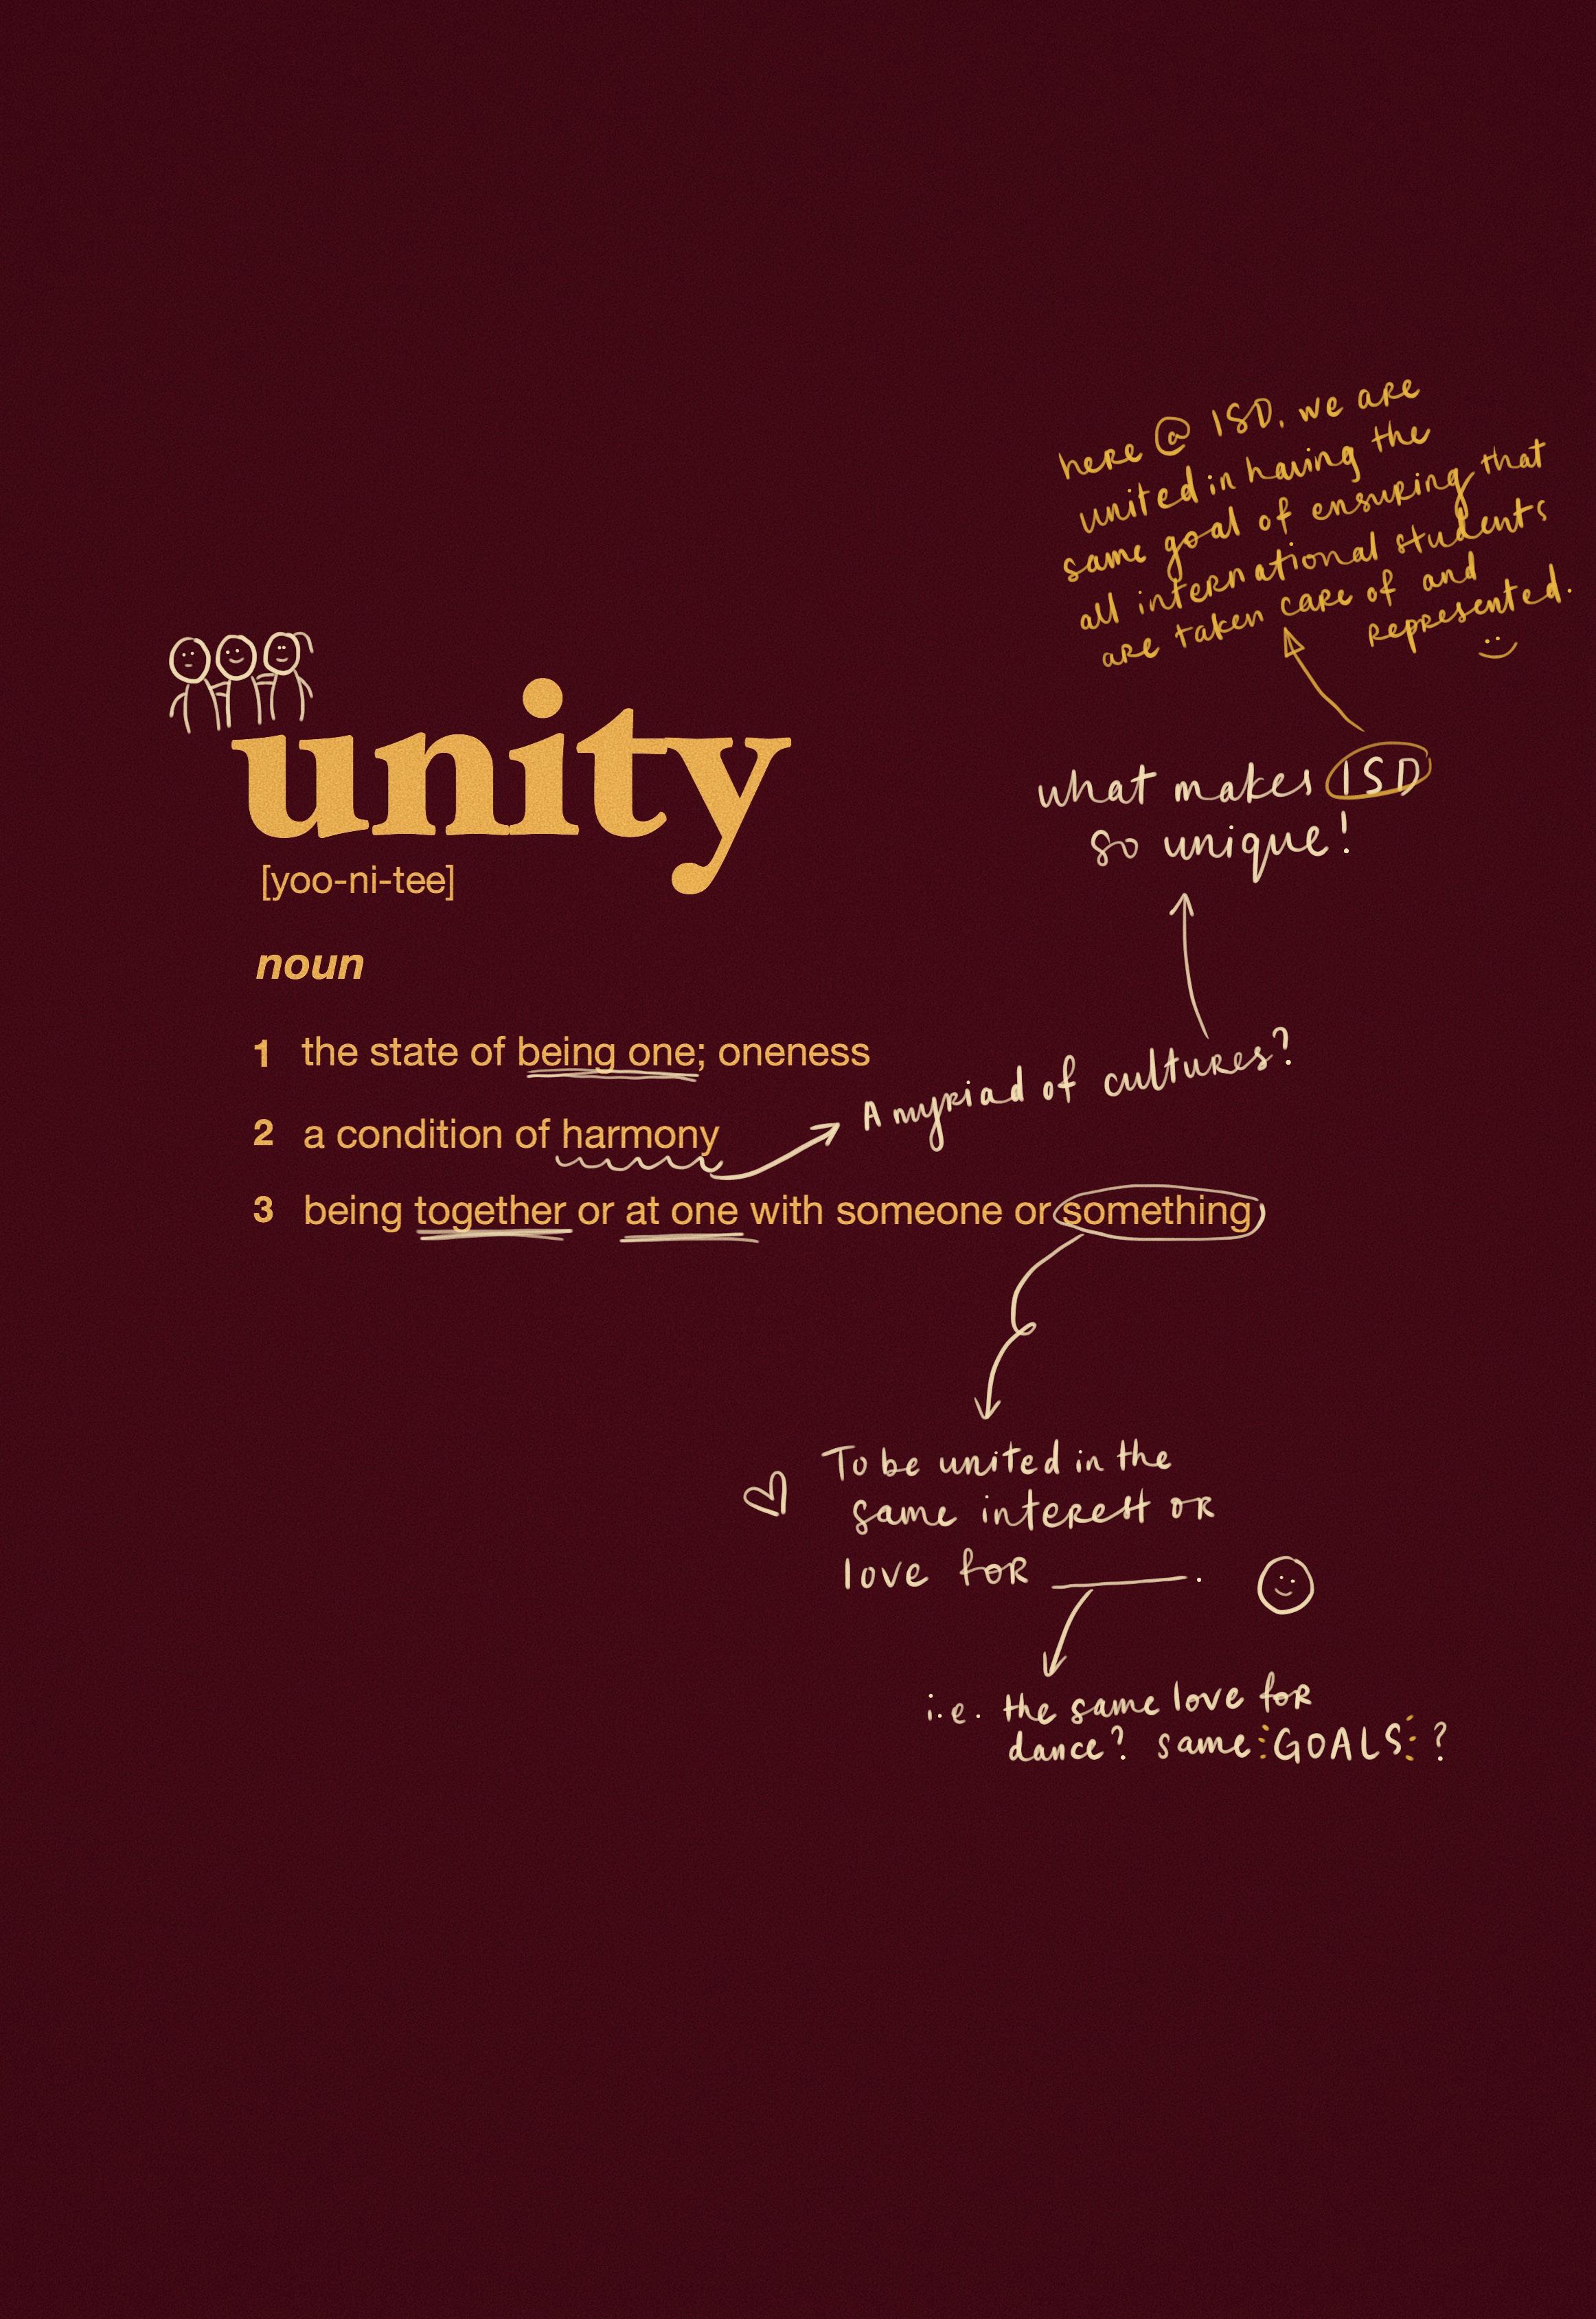 here @ ISD, we are
united in having the
same goal of ensuring that
all international students
are taken care of and
represented.
unity
[yoo-ni-tee]
what makes ISD
so unique!
noun
1 the state of being one; oneness
A myriad of cultures?
2 a condition of harmony
3 being together or at one with someone or something
To be united in the
same interest or
love for ______.
i.e. the same love for
dance? same GOALS ?